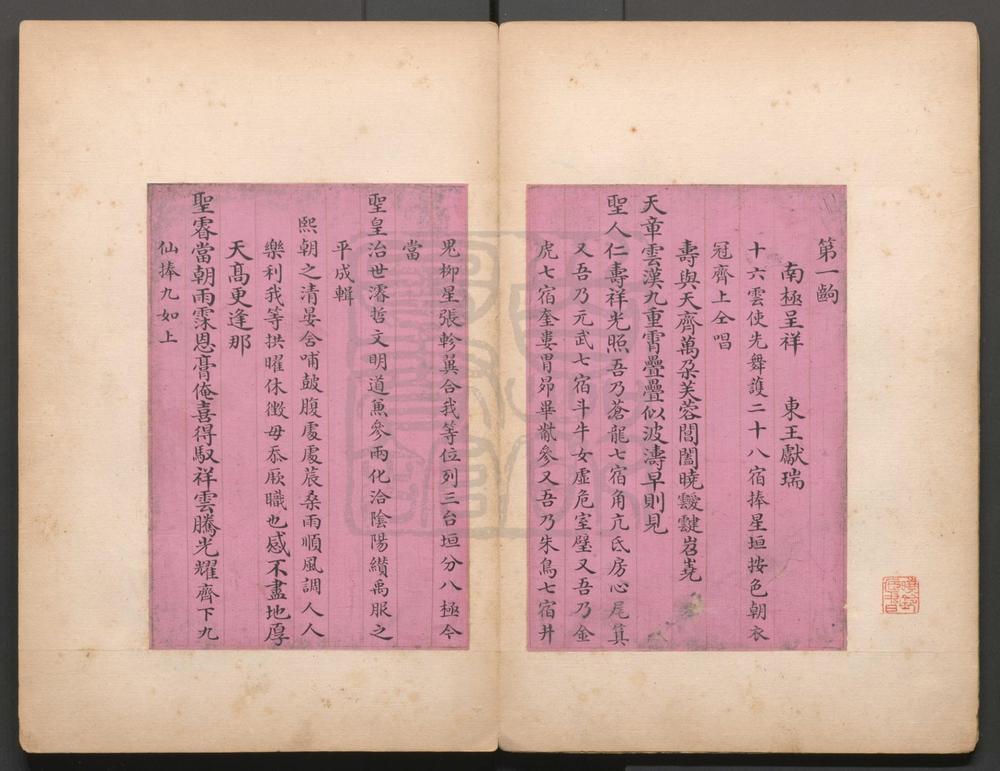 第一齣
南極呈祥　東王獻瑞
十六雲使先舞護二十八宿捧星垣按色朝衣
冠齊上仝唱
壽與天齊萬朶芙蓉閶闔曉靉靆岧嶤
天章雲漢九重霄疊疊似波濤早則見
聖人仁壽祥光照吾乃蒼龍七宿角亢氐房心尾箕
又吾乃元武七宿斗牛女虛危室壁又吾乃金
虎七宿奎婁胃昴畢觜參又吾乃朱鳥七宿井
鬼柳星張軫翼合我等位列三台垣分八極今
當
聖皇治世濬哲文明道兼參兩化洽陰陽纘禹服之
平成輯
熙朝之清晏含哺鼓腹處處農桑雨順風調人人
樂利我等拱曜休徵毋忝厥職也感不盡地厚
天高更逢那
聖睿當朝雨霂恩膏俺喜得馭祥雲騰光耀齊下九
仙捧九如上